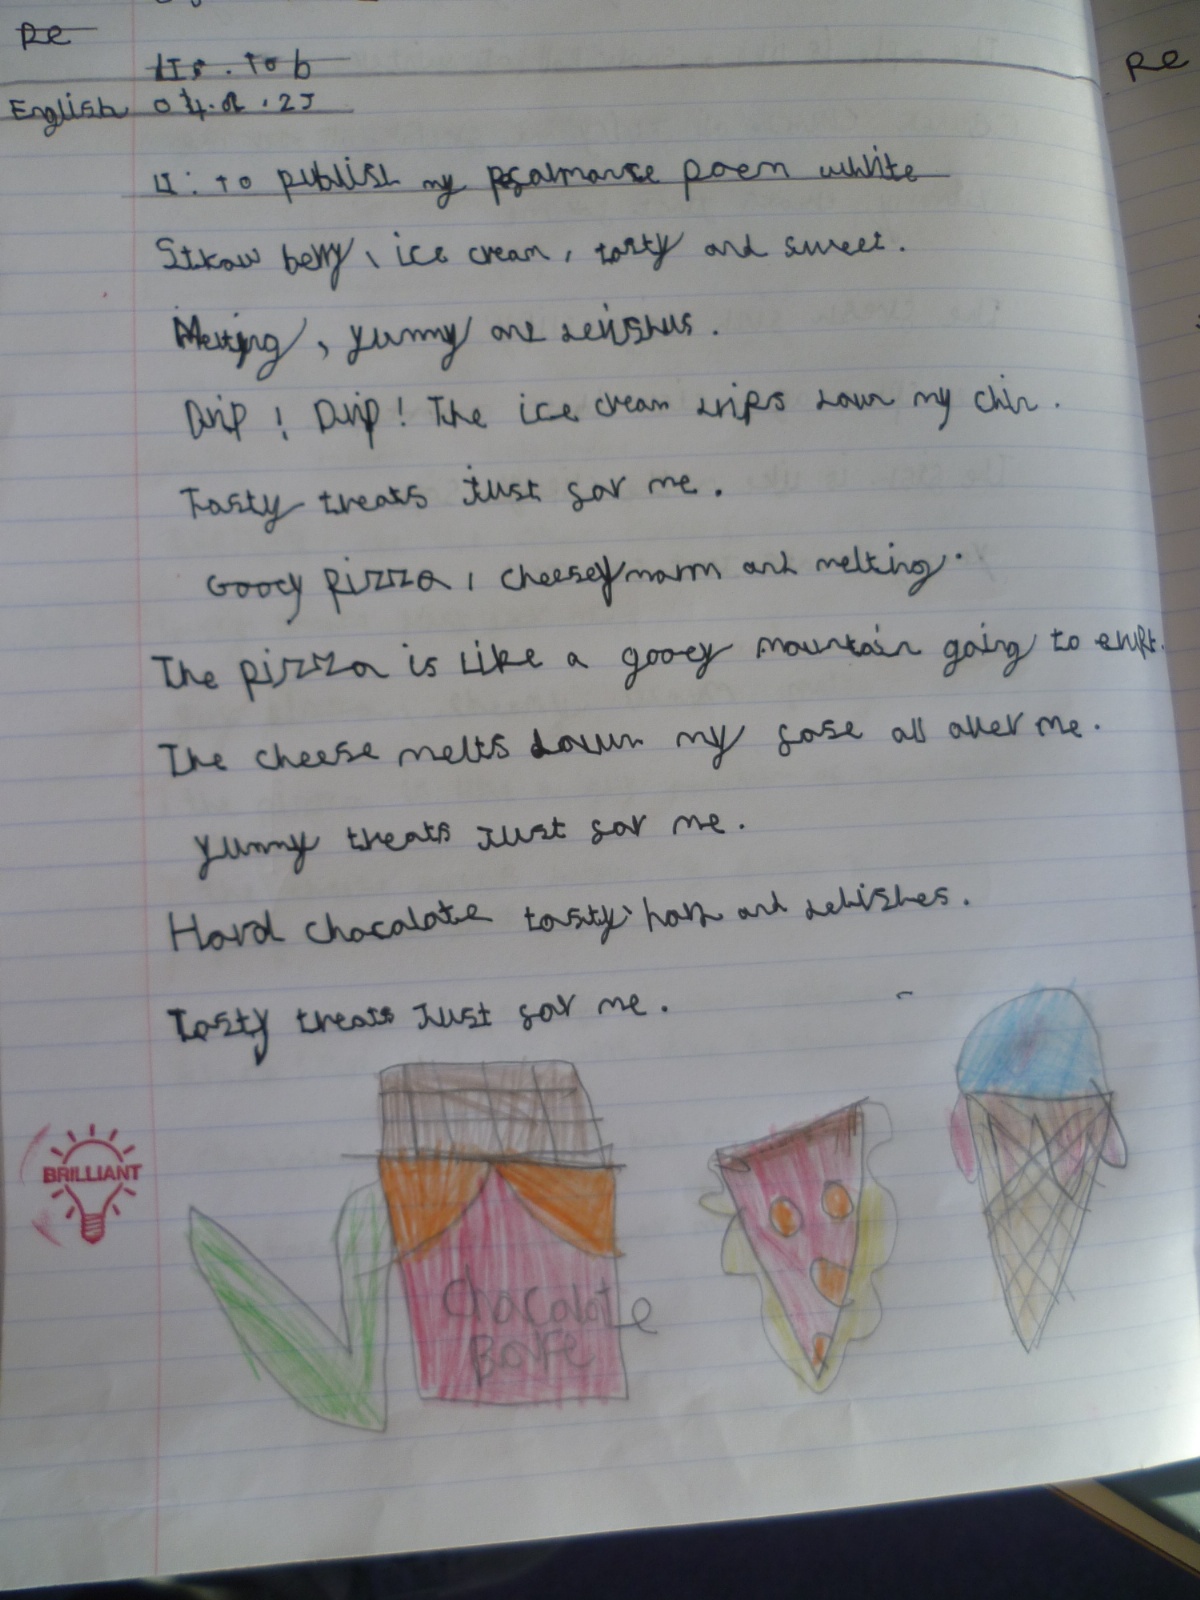 Re
Re
LI: To b
English 04.02.25
LI: to publish my poem
Strawberry, ice cream, tasty and sweet.
Melting, yummy and delishus.
Drip! Drip! The ice cream drips down my chin.
Tasty treats Just for me.
Gooey pizza, cheesey warm and melting.
The pizza is like a gooey mountain going to erupt.
The cheese melts down my fase all over me.
Yummy treats Just for me.
Hard chocalate tasty, and delishes.
Tasty treats Just for me.
BRILLIANT
Chocalate